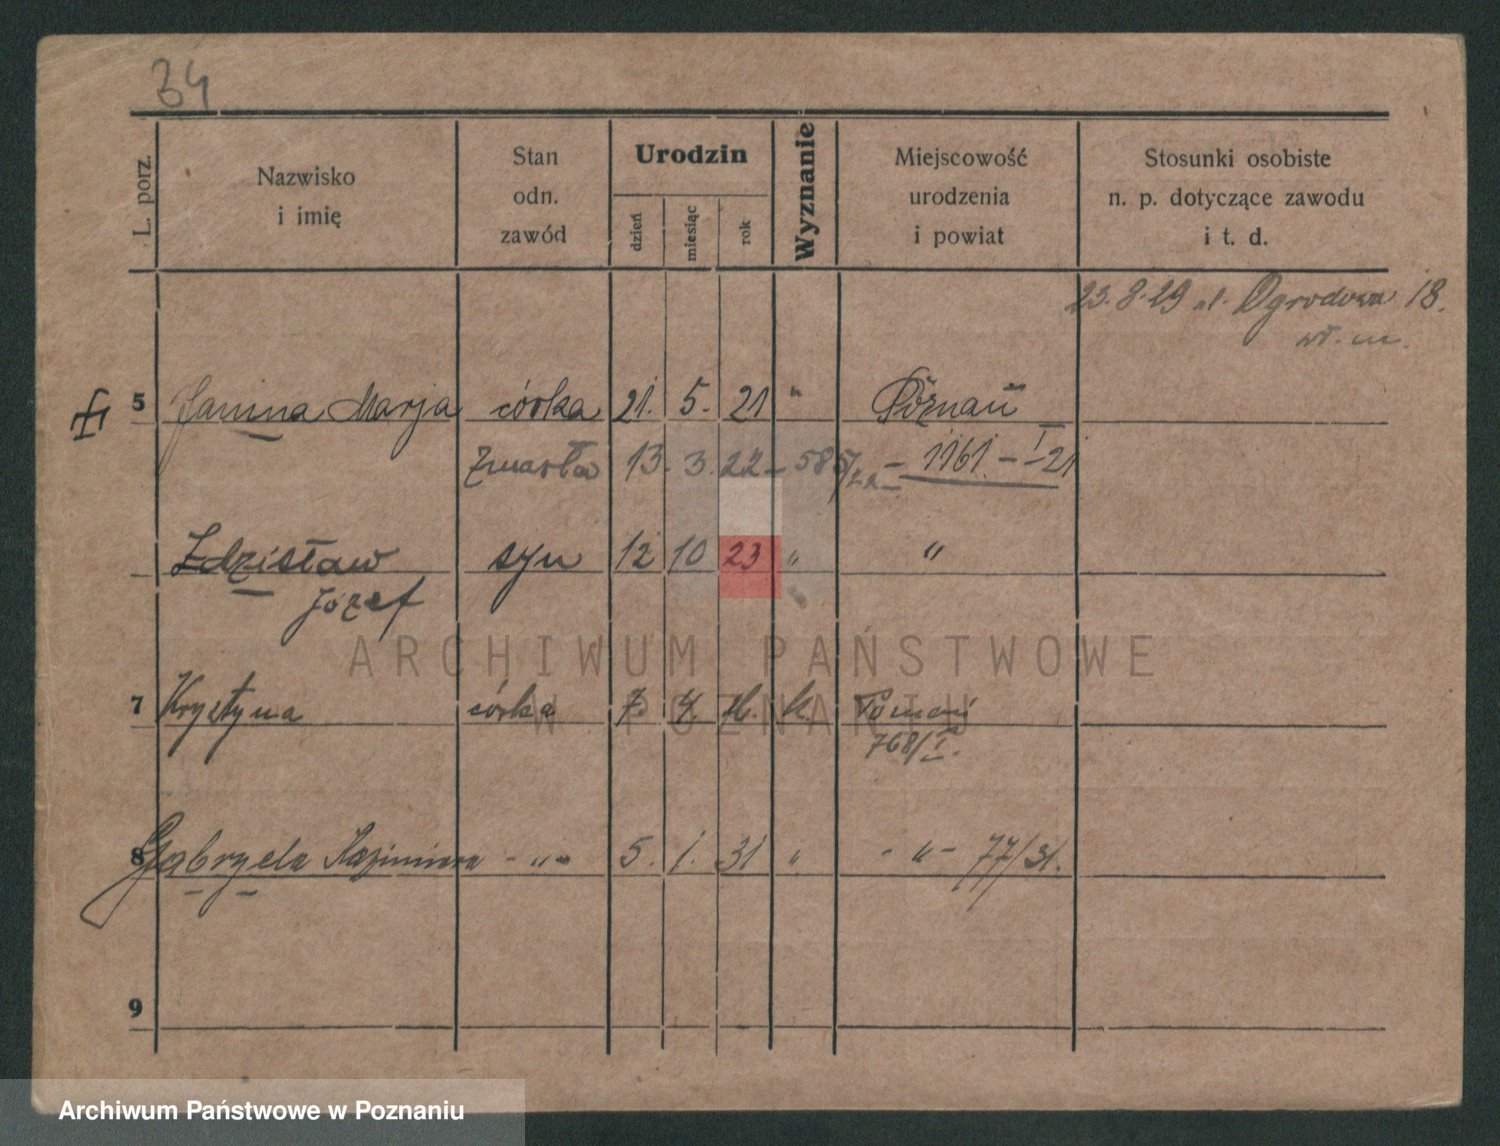 34
L. porz.
Nazwisko
i imię
Stan
odn.
zawód
Urodzin
dzień
miesiąc
rok
Wyznanie
Miejscowość
urodzenia
i powiat
Stosunki osobiste
n. p. dotyczące zawodu
i t. d.
23. 8. 29 ul. Ogrodowa 18.
wł. m.
5 Janina Marja córka 21. 5. 21 " Poznań
Zmarła 13. 3. 22 - 585/22 - 1161 - I - 21
Zdzisław syn 12 10 23 " "
Józef
ARCHIWUM PAŃSTWOWE
W POZNANIU
7 Krystyna córka 7. k. Poznań
768/I.
8 Gabryela Kazimiera - " - 5. 1. 31 " - " - 77/31.
9
Archiwum Państwowe w Poznaniu